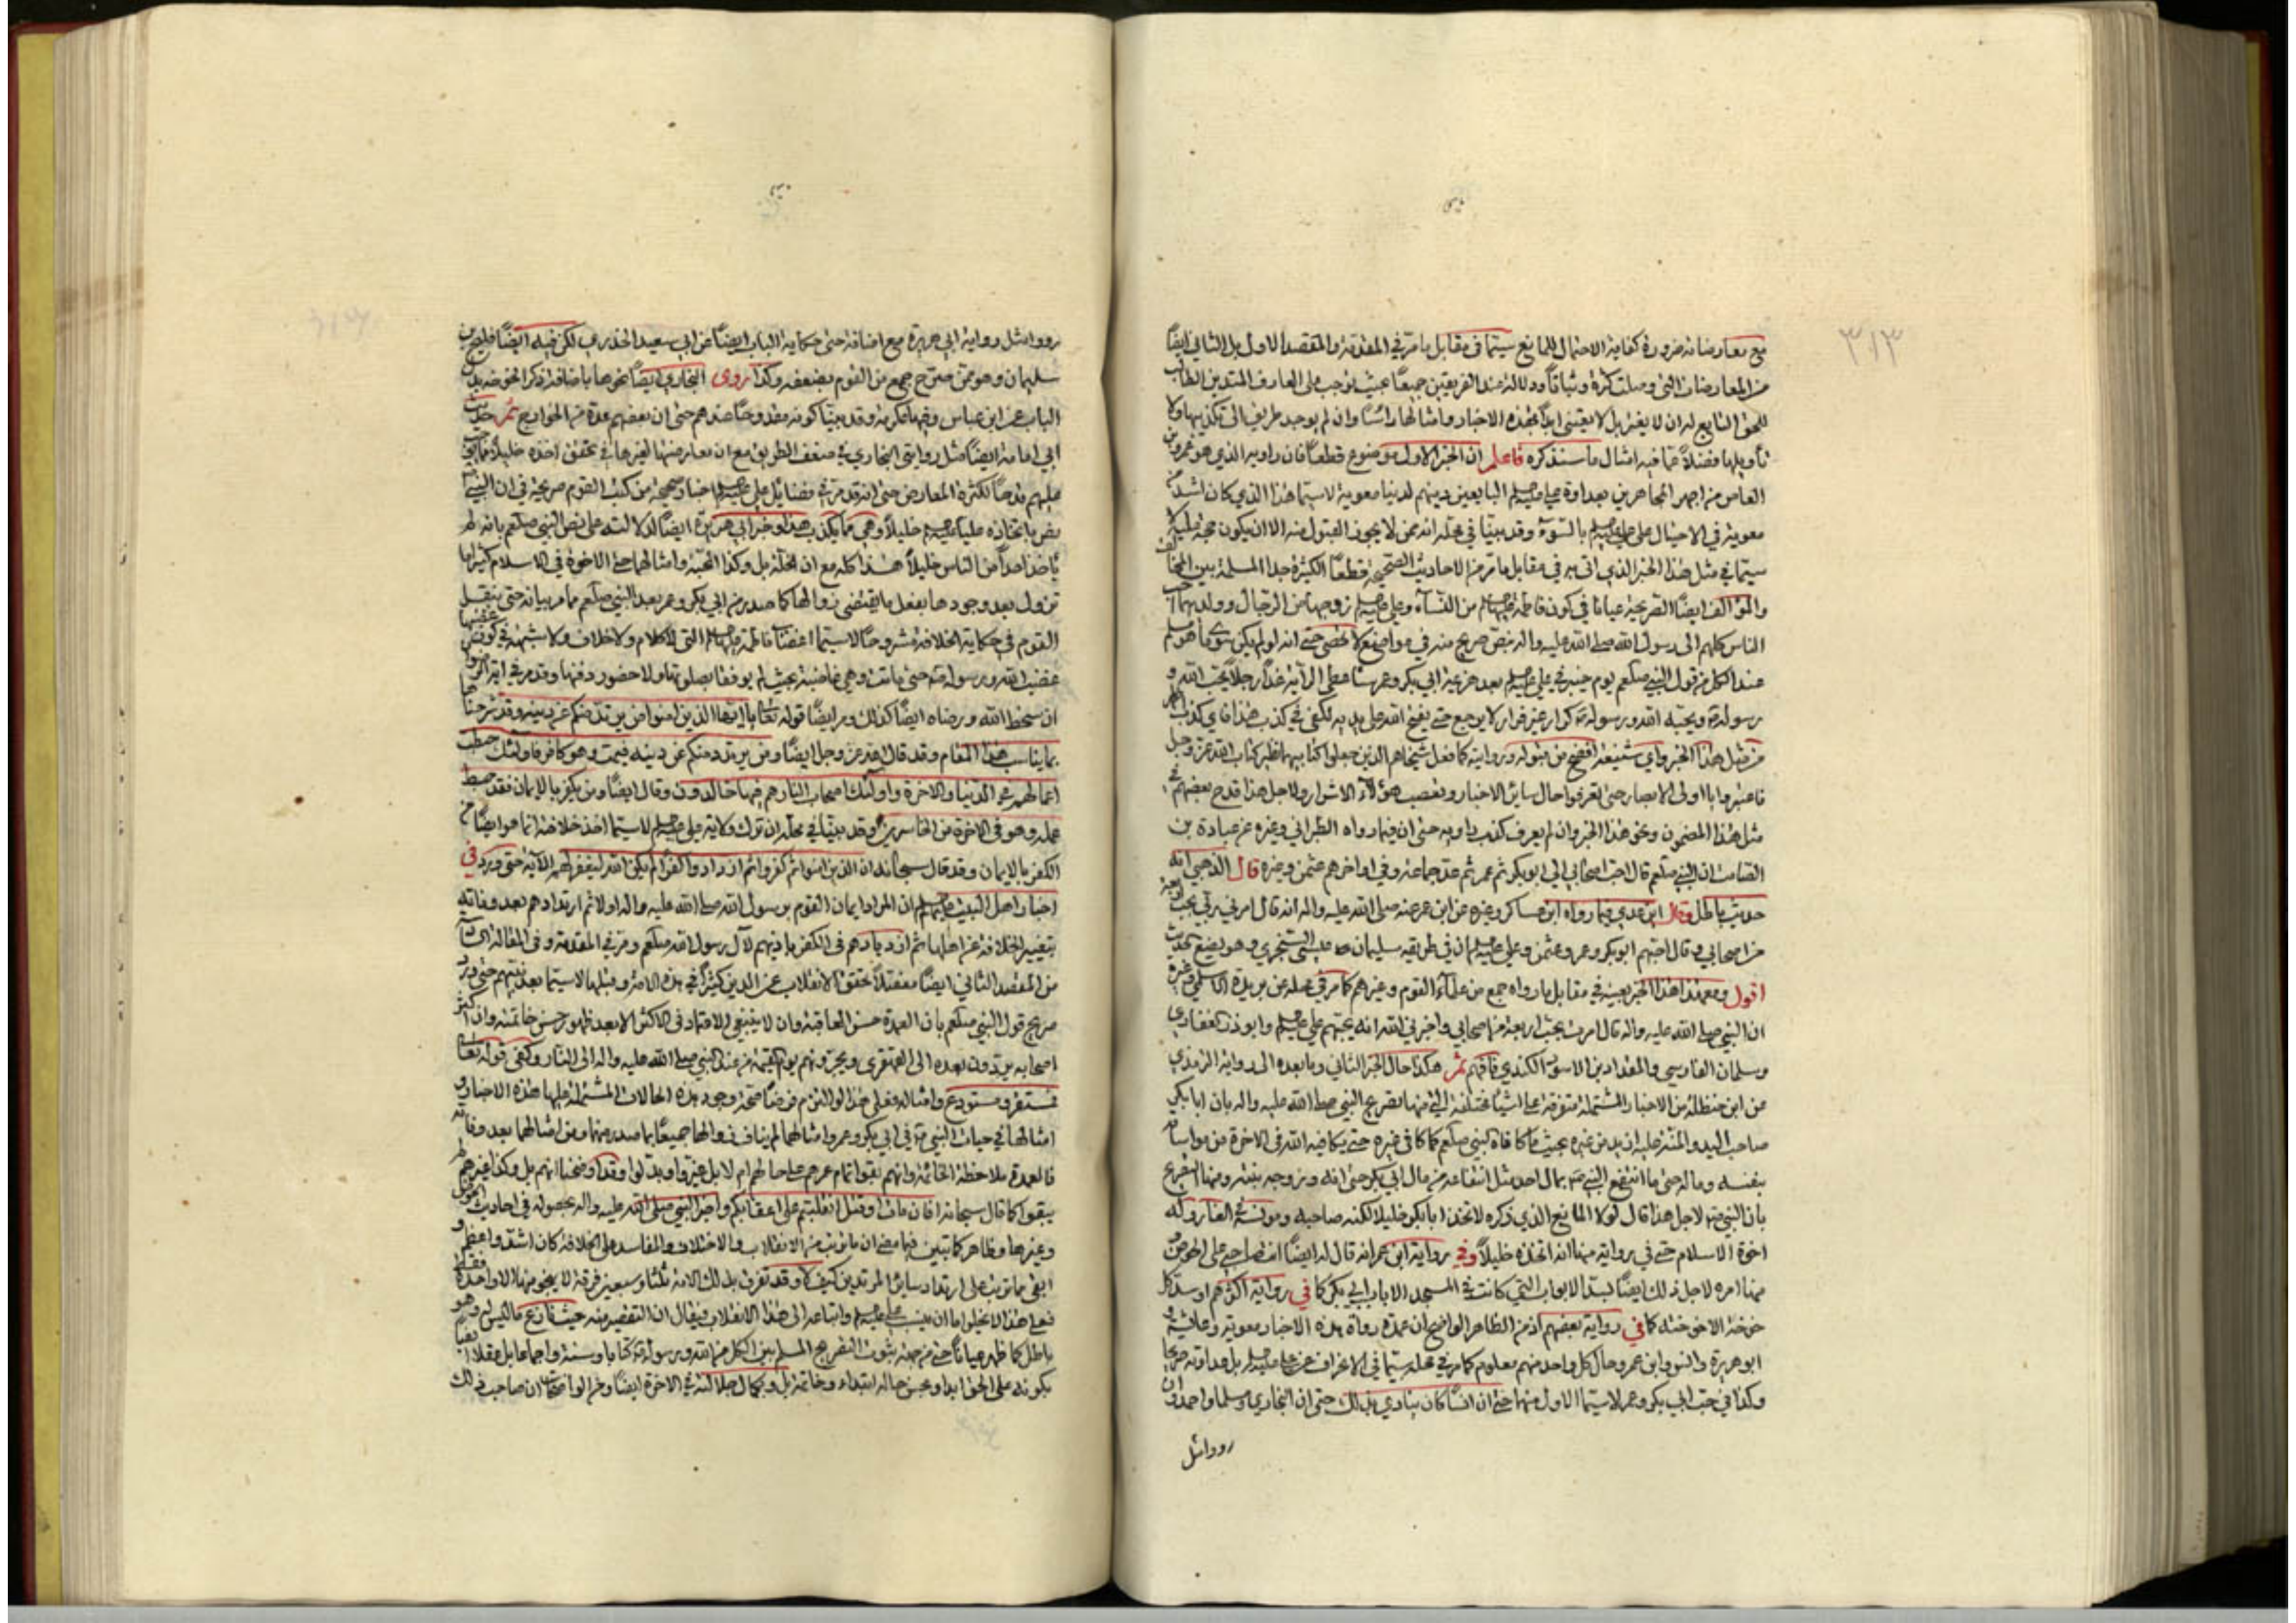 ٣١٣
مع معارضاته ضرورة كفاية الاحتمال للمانع سيما في مقابل ما مر في المقدمة والمقصد الاول بل الثاني ايضاً
من المعارضات التي وصلت كثرة وثباتاً ودلالة عند الفريقين جميعاً بحيث يوجب على العارف المتدين الطالب
للحق التابع له ان لا يغتر بل لا يعتني ابداً بهذه الاخبار وامثالها راساً وان لم يوجد طريق الى تكذيبها ولا
تأويلها فضلاً عما فيه امثال ما سنذكره فاعلم ان الخبر الاول موضوع قطعاً فان راويه الذي هو عمرو بن
العاص من اجهر المجاهرين بعداوة علي عليه السلم البايعين دينهم لدنيا معوية لاسيما هذا الذي كان اشد من
معوية في الاحتيال على علي عليه السلم بالسوء وقد بينا في محله انه ممن لا يجوز القبول منه الا ان يكون حجة عليه لا
سيما في مثل هذا الخبر الذي اتى به في مقابل ما مر من الاحاديث الصحيحة قطعاً الكثيرة جدا المسلمة بين المخالف
والموالف ايضاً الصريحة عيانا في كون فاطمة عليها السلم من النساء وعلي عليه السلم زوجها من الرجال وولديهما احب
الناس كلهم الى رسول الله صلى الله عليه واله بنص صريح منه في مواضع لا تحصى حتى انه لو لم يكن سوى ما هو مسلم
عند الكل من قول النبي صلعم يوم خيبر في علي عليه السلم بعد هزيمة ابي بكر وعمر سا عطي الراية غداً رجلاً يحب الله و
رسوله ويحبه الله ورسوله كرار غير فرار لا يرجع حتى يفتح الله على يديه لكفى في كذب هذا فاي كذب اظهر
من مثل هذا الخبر واي شنيعة افضح من قبوله وروايته كما فعل شيخاهم الذين جعلوا كتابيهما نظير كتاب الله عز وجل
فاعتبروا يا اولي الابصار حتى تعرفوا حال ساير الاخبار وتعصب هؤلاء الاشرار ولاجل هذا قدح بعضهم في
مثل هذا المضمون ونحو هذا الخبر وان لم يعرف كذب راويه حتى ان فيما رواه الطبراني وغيره عن عبادة بن
الصامت ان النبي صلعم قال احب اصحابي الي ابو بكر ثم عمر ثم عد جماعة وفي اواخرهم عثمن وغيره قال الذهبي انه
حديث باطل وقال ابن عدي فيما رواه ابن عساكر وغيره عن ابن عمر عنه صلى الله عليه واله انه قال امرني ربي بحب اربعة
من اصحابي وقال احبهم ابو بكر وعمر وعثمن وعلي عليه السلم ان في طريقه سليمان بن عيسى السنجري وهو يضع الحديث
اقول ومع هذا هذا الخبر بعينه في مقابل ما رواه جمع من علماء القوم وغيرهم كما مر في محله عن بريدة الاسلمي وغيره
ان النبي صلى الله عليه واله قال امرت بحب اربعة من اصحابي واخبرني الله انه يحبهم علي عليه السلم وابو ذر الغفاري
وسلمان الفارسي والمقداد بن الاسود الكندي فافهم ثم هكذا حال الخبر الثاني وما بعده الى رواية الترمذي
عن ابن حنظلة من الاخبار المشتملة متفرقة على اشياء مختلفة التي منها تصريح النبي صلى الله عليه واله بان ابا بكر
صاحب اليد والمنة عليه ازيد من غيره بحيث ما كافاه النبي صلعم كما كافى غيره حتى يكافيه الله في الاخرة من مواساته
بنفسه وماله حتى ما انتفع النبي ص بمال احد مثل انتفاعه من مال ابي بكر حتى انه زوجه بنته ومنها التصريح
بان النبي ص لاجل هذا قال لولا المانع الذي ذكره لاتخذ ابا بكر خليلا لكنه صاحبه ومونسه في الغار وله
اخوة الاسلام حتى في رواية منها انه اتخذه خليلاً وفي رواية ابن عمر انه قال له ايضاً انت صاحبي على الحوض و
منها امره لاجل ذلك ايضاً بسد الابواب التي كانت في المسجد الا باب ابي بكر كما في رواية اكثرهم او سد كل
خوخة الا خوخته كما في رواية بعضهم اذ من الظاهر الواضح ان عمدة رواة هذه الاخبار معوية وعائشة و
ابو هريرة وانس وابن عمر وحال كل واحد منهم معلوم كما مر في محله سيما في الانحراف عن علي عليه السلم بل عداوته صريحا
وكذا في حب ابي بكر وعمر لاسيما الاول منها حتى ان انساً كان ينادي بذلك حتى ان البخاري ومسلما واحمد وان
رووا مثل
رووا مثل رواية ابي هريرة مع اضافة حتى حكاية الباب ايضاً عن ابي سعيد الخدري لكن فيه ايضاً فليح بن
سليمان وهو ممن صرح جمع من القوم بضعفه وكذا روى البخاري ايضاً نحوها باضافة ذكر الخوخة بدل
الباب عن ابن عباس وفيها عكرمة وقد بينا كونه مقدوحاً عندهم حتى ان بعضهم عده من الخوارج ثم حديث
ابي امامة ايضاً مثل روايتي البخاري في ضعف الطريق مع ان معارضتها لغيرها في تحقق اخذه خليلاً
عليهم قدحاً لكثرة المعارض حتى انه قد مر في فضائل علي عليه السلم اخبار صحيحة من كتب القوم صريحة في ان النبي ص
نص باتخاذه علياً عليه السلم خليلاً وهي مما يكذب هذا وخبر ابي هريرة ايضاً لدلالته على نص النبي صلعم بانه لم
يأخذ احداً من الناس خليلاً هذا كله مع ان الخلة بل وكذا المحبة وامثالهما حتى الاخوة في الاسلام كثيرا ما
تزول بعد وجودها بفعل ما يقتضي زوالها كما صدر من ابي بكر وعمر بعد النبي صلعم مما مر بيانه حتى بنقل
القوم في حكاية الخلافة مشروحاً لاسيما اغضاب فاطمة عليها السلم التي لا كلام ولا خلاف ولا شبهة في كون غضبها
غضب الله ورسوله حتى ماتت وهي غاضبة بحيث لم يوفقا بصلوتها ولا حضور دفنها وقد مر في
ان سخط الله ورضاه ايضاً كذلك ومر ايضاً قوله تعالى يا ايها الذين امنوا من يرتد منكم عن دينه وقد شرحنا
بما يناسب هذا المقام وقد قال الله عز وجل ايضاً ومن يرتدد منكم عن دينه فيمت وهو كافر فاولئك حبطت
اعمالهم في الدنيا والاخرة واولئك اصحاب النار هم فيها خالدون وقال ايضاً ومن يكفر بالايمان فقد حبط
عمله وهو في الاخرة من الخاسرين وقد بينا في محله ان ترك ولاية علي عليه السلم لاسيما اخذ خلافته انما هو ايضاً من
الكفر بالايمان وقد قال سبحانه ان الذين امنوا ثم كفروا ثم ازدادوا كفرا لم يكن الله ليغفر لهم الآية حتى ورد في
اخبار اهل البيت عليهم السلم ان المراد ايمان القوم برسول الله صلى الله عليه واله اولا ثم ارتدادهم بعد وفاته
بتغيير الخلافة عن اهلها ثم ازديادهم في الكفر باذيتهم لآل رسول الله صلعم ومر في المقدمة وفي المقالة
من المقصد الثاني ايضاً مفصلاً تحقق الانقلاب عن الدين كثيراً في هذه الامة وقبلها لاسيما بعد نبيهم حتى ورد
صريح قول النبي صلعم بان العمدة حسن العاقبة وان لا ينبغي الاعتماد في الاكثر الا بعد ظهور حسن خاتمته وان اكثر
اصحابه يرتدون بعده الى القهقرى ويجرونهم يوم القيمة من عند النبي صلى الله عليه واله الى النار وكفى قوله تعالى
فمستقر ومستودع وامثاله فعلى هذا لو التزم فرضاً صحة وجود هذه الحالات المشتملة عليها هذه الاخبار و
امثالها في حيات النبي ص في ابي بكر وعمر وامثالهما لم يناف زوالها جميعاً بما صدر منهما ومن امثالهما بعد وفاته
فالعمدة ملاحظة الخاتمة وانهم بقوا تمام عمرهم على حالهم ام لا بل غيروا وبدلوا وقد اوضحنا انهم بل وكذا غيرهم لم
يبقوا كما قال سبحانه افان مات او قتل انقلبتم على اعقابكم واخبر النبي صلى الله عليه واله بحصوله في احاديث الحوض
وغيرها وظاهر كما تبين فيما مضى ان ما ترتب من الانقلاب والاختلاف والمفاسد على الخلافة كان اشد واعظم و
ابقى مما ترتب على ارتداد ساير المرتدين كيف لا وقد تفرق بذلك الامة ثلثا وسبعين فرقة لا ينجو منها الا واحدة فقط
فعلى هذا لا يخلو اما ان ينسب علي عليه السلم واتباعه الى هذا الانقلاب ويقال ان التقصير منه حيث نازع ما ليس له وهو
باطل كما ظهر عياناً حتى من جهة ثبوت التصريح المسلم بين الكل من الله ورسوله كتابا وسنة واجماعا بل عقلا ايضا
بكونه على الحق ابدا وبحسن حاله ابتداء وخاتمة بل وبكمال جلالته في الاخرة ايضاً ومن الواضحات ان صاحب ذلك